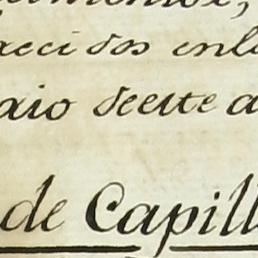 aecidos enl
aio deste a
de Capill